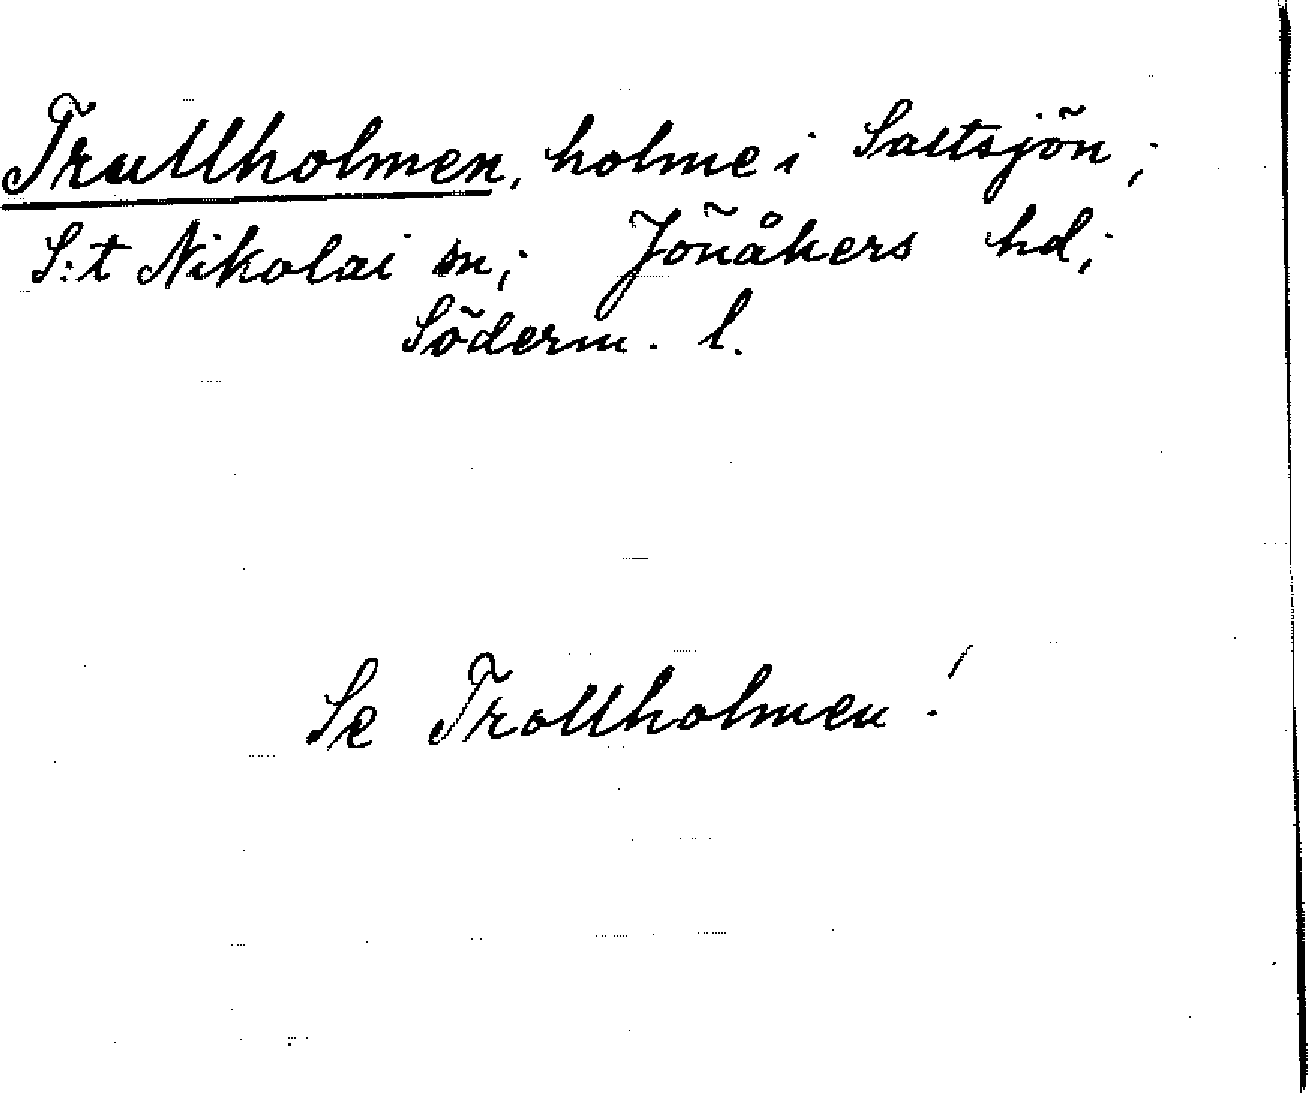 Trullholmen, holme i Saltsjön;
S:t Nikolai sn; Jönåkers hd;
Söderm. l.
Se Trollholmen!